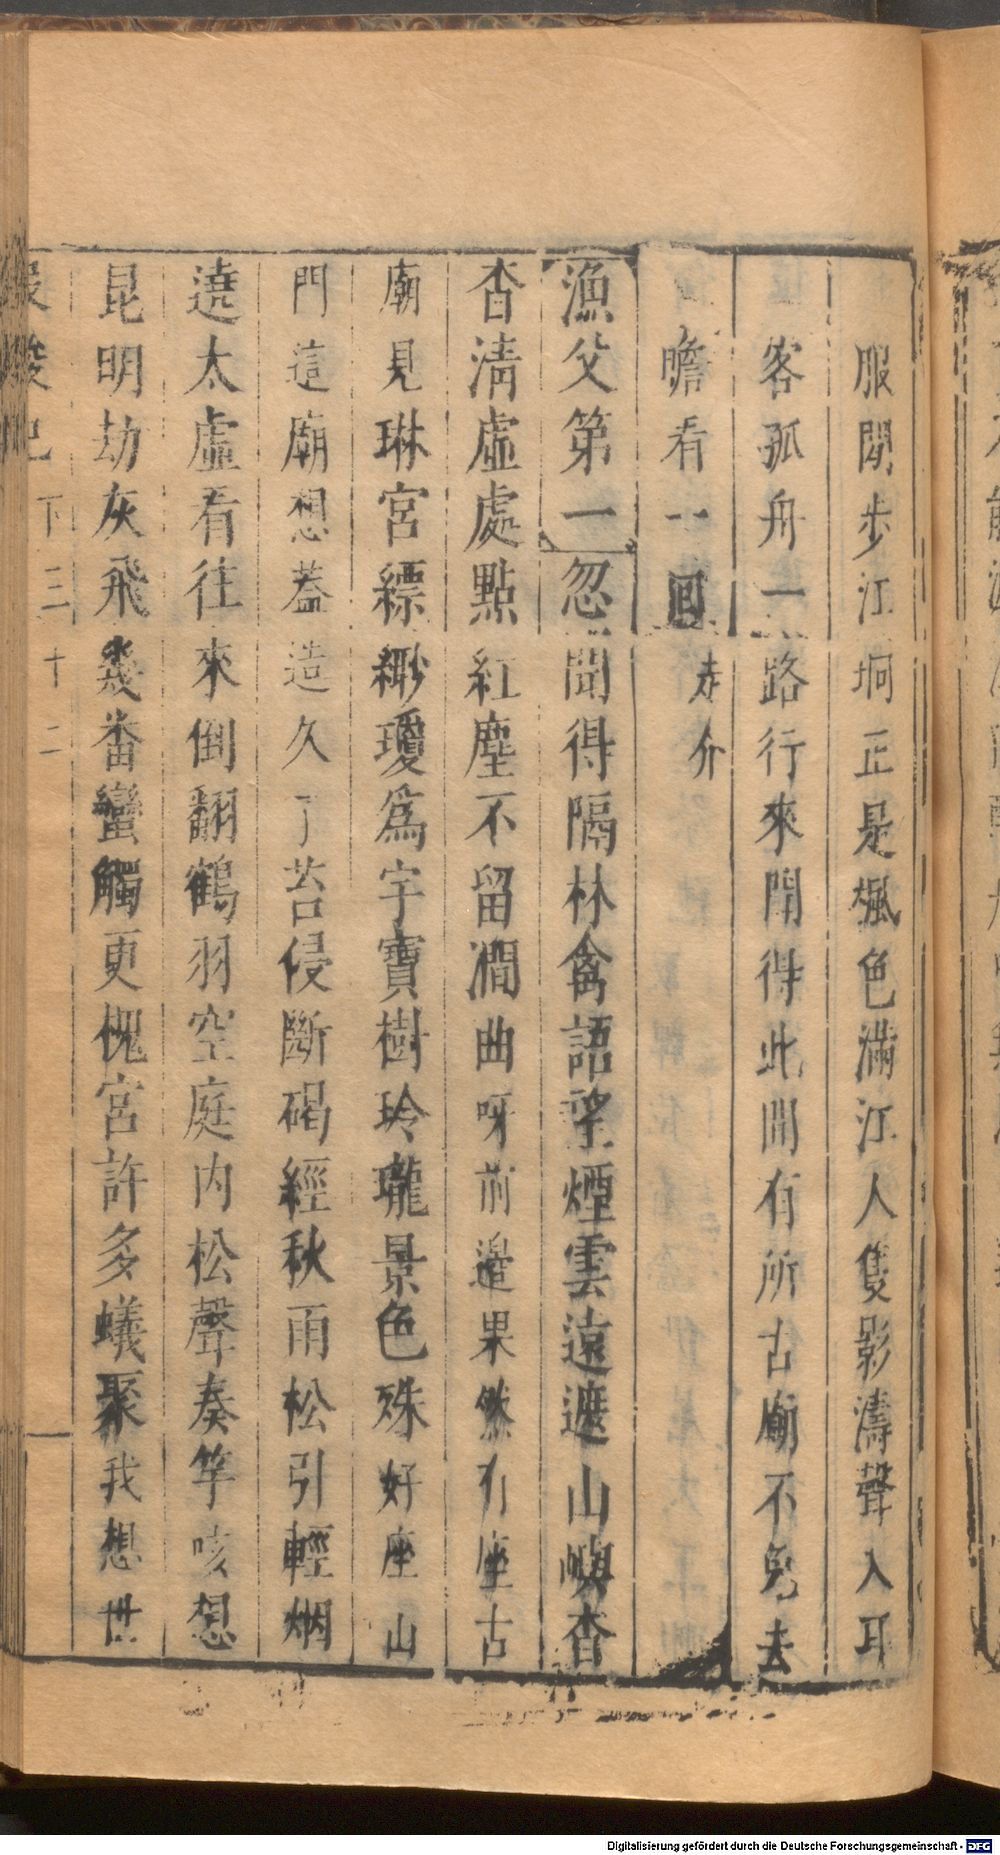 服閒步江坰正是楓色滿江人隻影濤聲入耳
客孤舟一路行來聞得此間有所古廟不免去
瞻看一回走介
漁父第一忽聞得隔林禽語望煙雲遠遮山嶼杳
杳清虛處點紅塵不留澗曲呀前邉果然有座古
廟見琳宮縹緲瓊爲宇寶樹玲瓏景色殊好座山
門這廟想葢造久了苔侵斷碣經秋雨松引輕烟
遶太虛看往來倒翻鶴羽空庭内松聲奏竽咳想
昆明劫灰飛幾畨蠻觸更槐宮許多蟻聚我想世
下三十二
Digitalisierung gefördert durch die Deutsche Forschungsgemeinschaft - DFG